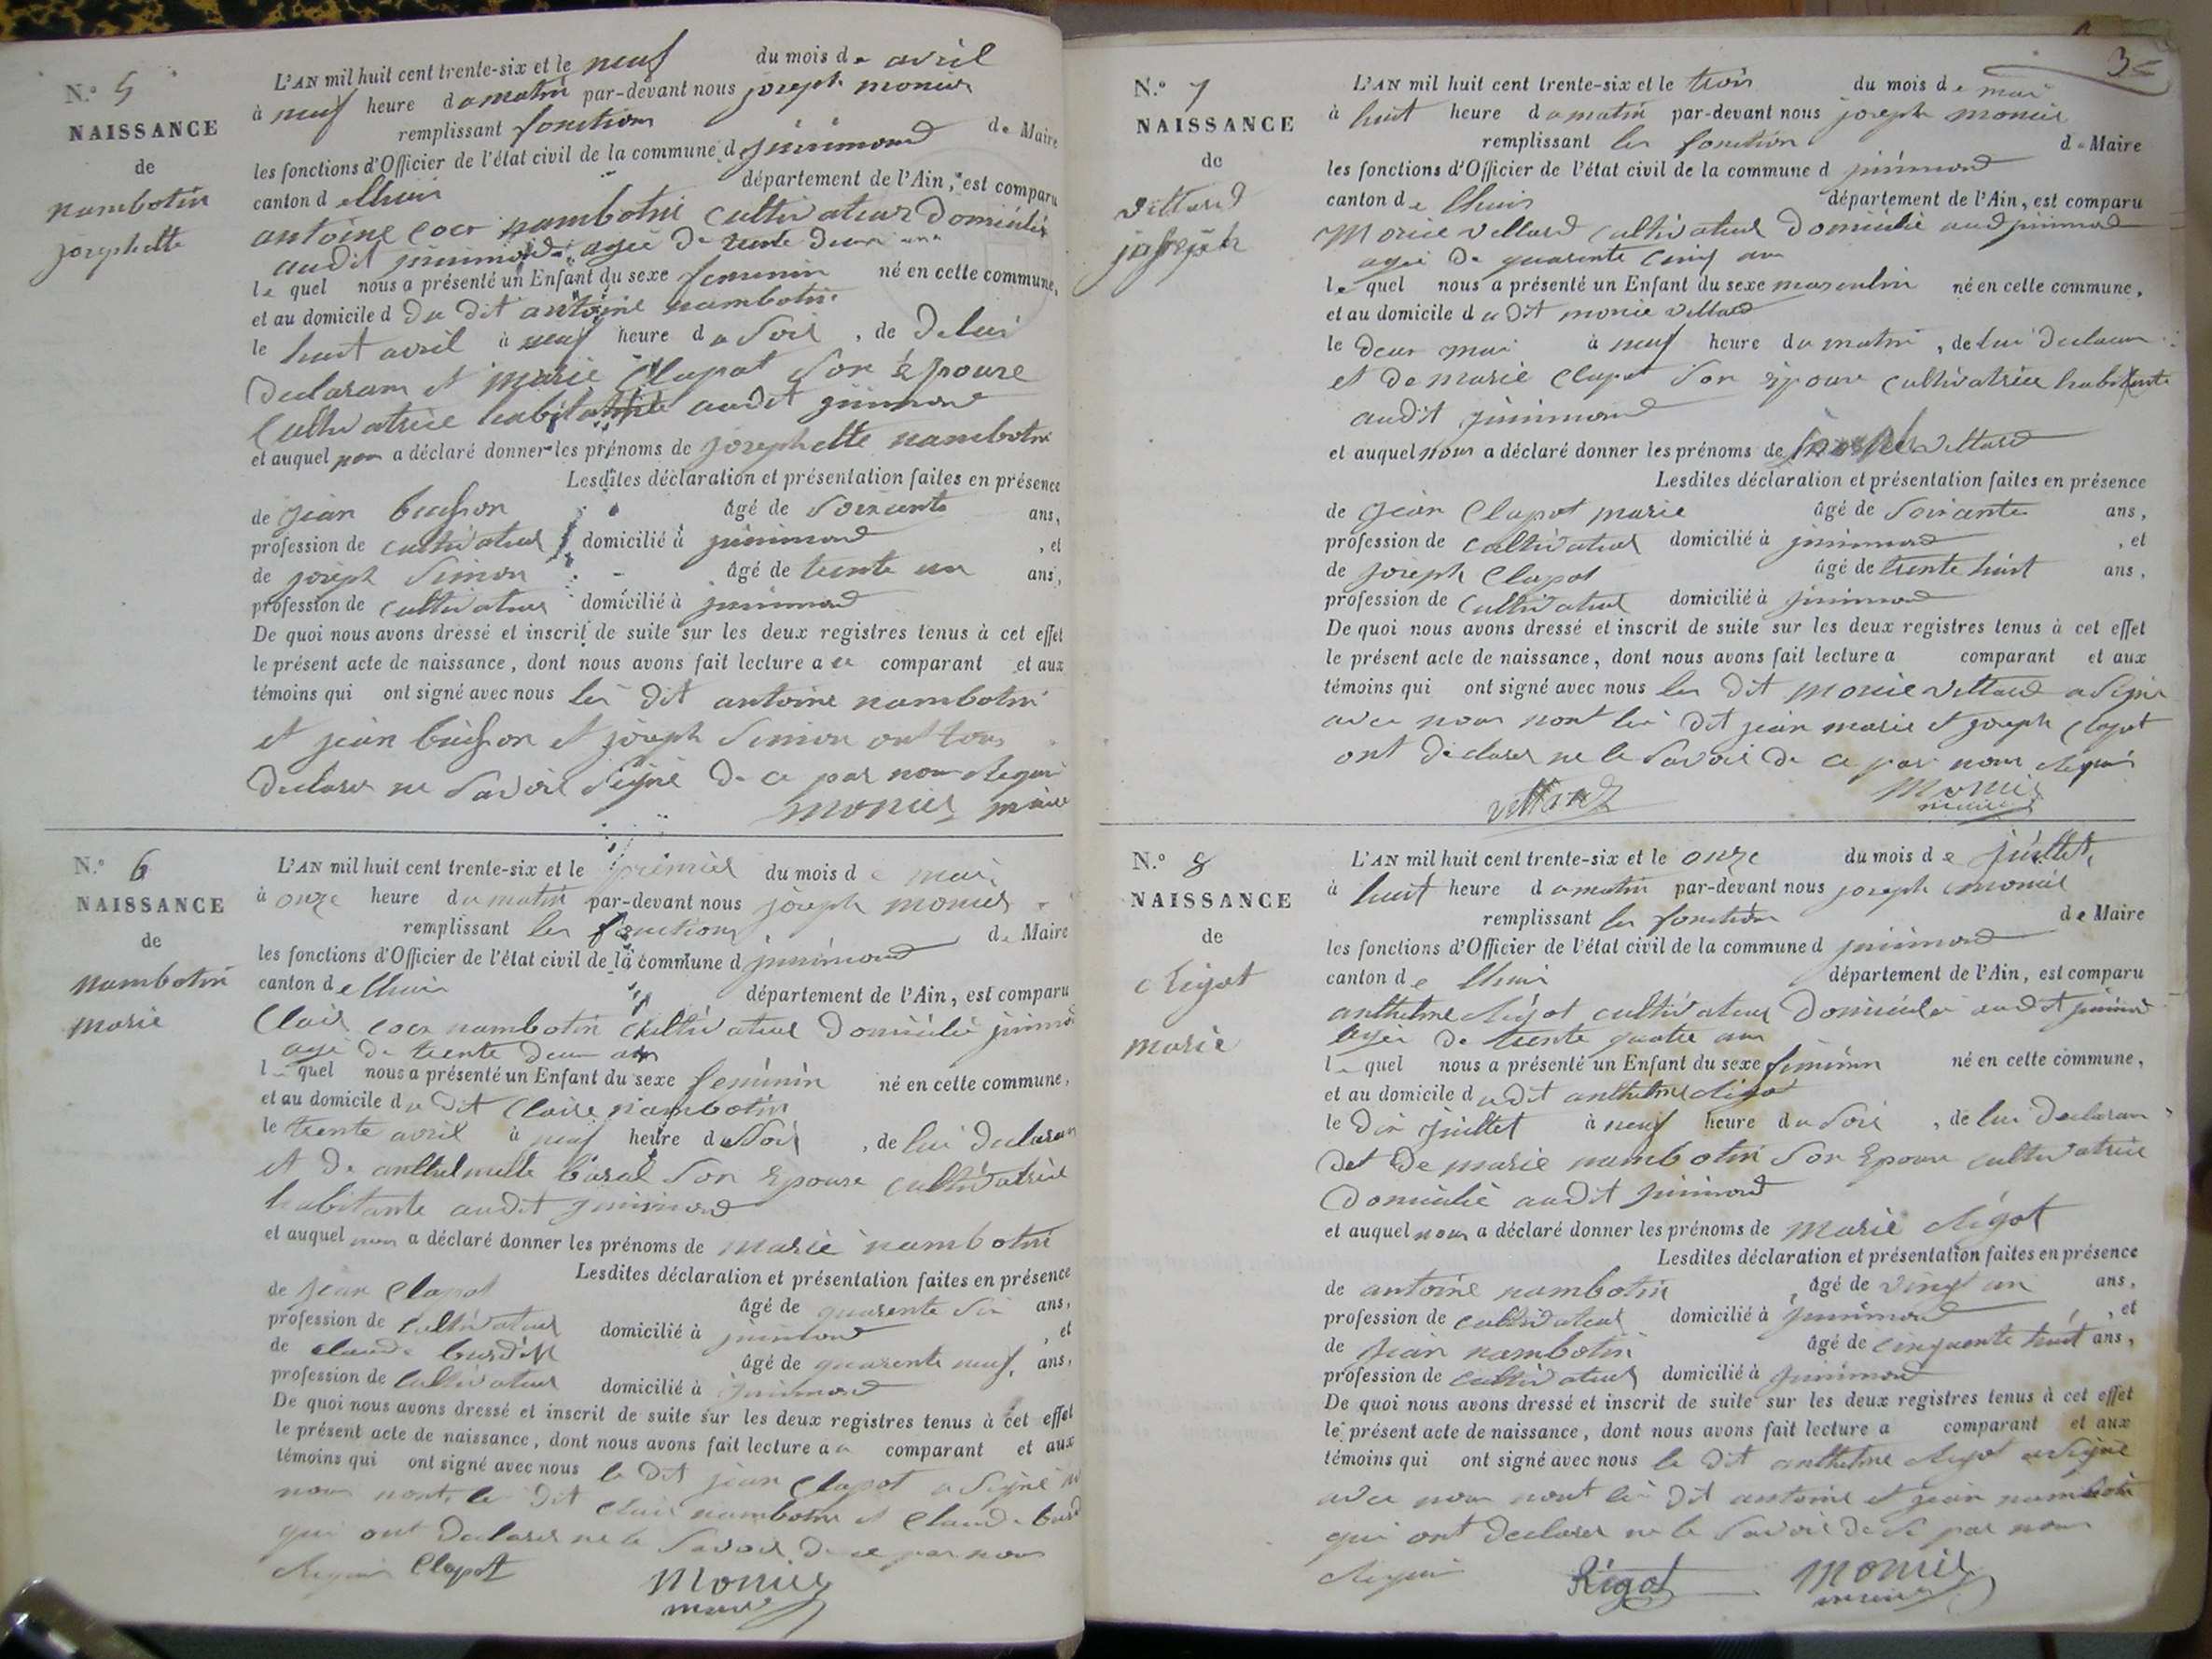 N.º 5
NAISSANCE
de
nambotin
josephette
L'AN mil huit cent trente-six et le neuf du mois de avril
à neuf heure du matin par-devant nous joseph monier
remplissant fonction de Maire
les fonctions d'Officier de l'état civil de la commune d jinimond
canton d e lhuis département de l'Ain, est comparu
antoine cocr nambotin cultivateur domicilié
audit jinimond agée de trente deux ans
le quel nous a présenté un Enfant du sexe feminin né en cette commune,
et au domicile d du dit antoine nambotin
le huit avril à neuf heure du soir, de de lui
declarans et marie Clapot son épouse
cultivatrice habitante audit jinimond
et auquel nous a déclaré donner les prénoms de josephette nambotin
Lesdites déclaration et présentation faites en présence
de jean buisson âgé de soixcente ans,
profession de cultivateur domicilié à jinimond, et
de joseph simon âgé de trente un ans,
profession de cultivateur domicilié à jinimond
De quoi nous avons dressé et inscrit de suite sur les deux registres tenus à cet effet
le présent acte de naissance, dont nous avons fait lecture a ce comparant et aux
témoins qui ont signé avec nous les dit antoine nambotin
et jean buisson et joseph simon ont tous
declarer ne savoir signé de ce par nous requi
monier maire
N.º 6
NAISSANCE
de
nambotin
marie
L'AN mil huit cent trente-six et le premier du mois de mai
à onze heure du matin par-devant nous joseph monier
remplissant les fonctions de Maire
les fonctions d'Officier de l'état civil de la commune d jinimond
canton de lhuis département de l'Ain, est comparu
Clair cocr nambotin cultivateur domicilié jinimond
agé de trente deux ans
le quel nous a présenté un Enfant du sexe feminin né en cette commune,
et au domicile du dit Claire nambotin
le trente avril à neuf heure du soir, de lui declarans
et de anthelmette baral son epouse cultivatrice
habitante audit jinimond
et auquel nous a déclaré donner les prénoms de marie nambotin
Lesdites déclaration et présentation faites en présence
de jean Clapot âgé de quarente six ans,
profession de cultivateur domicilié à jinimond, et
de claude âgé de quarente neuf ans,
profession de cultivateur domicilié à jinimond
De quoi nous avons dressé et inscrit de suite sur les deux registres tenus à cet effet
le présent acte de naissance, dont nous avons fait lecture a comparant et aux
témoins qui ont signé avec nous le dit jean Clapot a signé
nous nont le dit Clair nambotin et Claude
qui ont declarer ne le savoir de ce par nous
requi Clapot
monier
maire
3
N.º 7
NAISSANCE
de
vettard
joseph
L'AN mil huit cent trente-six et le trois du mois de mai
à huit heure du matin par-devant nous joseph monier
remplissant les fonction de Maire
les fonctions d'Officier de l'état civil de la commune d jinimond
canton de lhuis département de l'Ain, est comparu
Morice vettard cultivateur domicilié audjinimond
agée de quarente cinq ans
le quel nous a présenté un Enfant du sexe masculin né en cette commune,
et au domicile du dit morice vettard
le deux mai à neuf heure du matin, de lui declarans
et de marie Clapot son épouse cultivatrice habitente
audit jinimond
et auquel nous a déclaré donner les prénoms de joseph vettard
Lesdites déclaration et présentation faites en présence
de jean Clapot marie âgé de soixante ans,
profession de cultivateur domicilié à jinimond, et
de joseph Clapot âgé de trente huit ans,
profession de cultivateur domicilié à jinimond
De quoi nous avons dressé et inscrit de suite sur les deux registres tenus à cet effet
le présent acte de naissance, dont nous avons fait lecture a comparant et aux
témoins qui ont signé avec nous les dit morice vettard a signé
avec nous nont les dit jean marie et joseph Clapot
ont declarer ne le savoir de ce par nous requis
vettard
Monier
maire
N.º 8
NAISSANCE
de
Rigot
marie
L'AN mil huit cent trente-six et le onze du mois de juillet
à huit heure du matin par-devant nous joseph monier
remplissant les fonction de Maire
les fonctions d'Officier de l'état civil de la commune d jinimond
canton de lhuis département de l'Ain, est comparu
anthelme Rigot cultivateur domicilié audit jinimond
agée de trente quatre ans
le quel nous a présenté un Enfant du sexe feminin né en cette commune,
et au domicile du dit anthelme Rigot
le dix juillet à neuf heure du soir, de lui declarans
det de marie nambotin son epouse cultivatrice
domicilié audit jinimond
et auquel nous a déclaré donner les prénoms de marie Rigot
Lesdites déclaration et présentation faites en présence
de antoine nambotin âgé de vingt un ans,
profession de cultivateur domicilié à jinimond, et
de jean nambotin âgé de cinquente huit ans,
profession de cultivateur domicilié à jinimond
De quoi nous avons dressé et inscrit de suite sur les deux registres tenus à cet effet
le présent acte de naissance, dont nous avons fait lecture a comparant et aux
témoins qui ont signé avec nous le dit anthelme Rigot a signé
avec nous nont les dit antoine et jean nambotin
qui ont declarer ne le savoir de ce par nous
Requi
Rigot
monier
maire